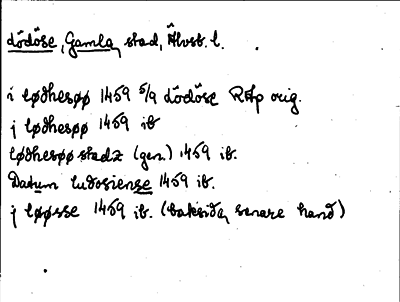 Lödöse, Gamla, stad, Älvsb. l.
i lødhesøø 1459 5/9 Lödöse RAp orig.
j lødhesøø 1459 ib
lødhesøø stadz (gen.) 1459 ib.
Datum ludosiense 1459 ib.
j løøsse 1459 ib. (baksida, senare hand)